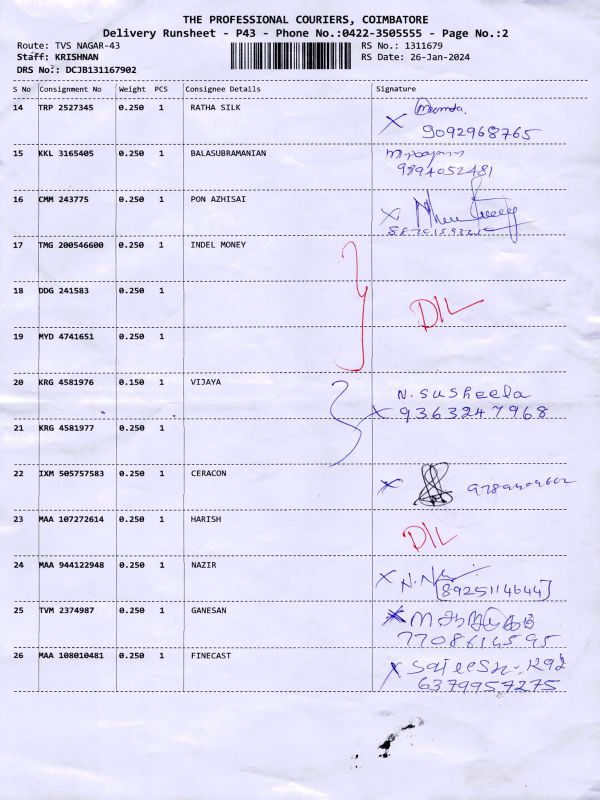 THE PROFESSIONAL COURIERS, COIMBATORE
Delivery Runsheet - P43 - Phone No.:0422-3505555 - Page No.:2
Route: TVS NAGAR-43 RS No.: 1311679
Staff: KRISHNAN RS Date: 26-Jan-2024
DRS No.: DCJB131167902
S No Consignment No Weight PCS Consignee Details Signature
14 TRP 2527345 0.250 1 RATHA SILK
9092968765
15 KKL 3165405 0.250 1 BALASUBRAMANIAN
9894052481
16 CMM 243775 0.250 1 PON AZHISAI
17 TMG 200546600 0.250 1 INDEL MONEY
18 DDG 241583 0.250 1
D/L
19 MYD 4741651 0.250 1
20 KRG 4581976 0.150 1 VIJAYA N. susheela
9363247968
21 KRG 4581977 0.250 1
22 IXM 505757583 0.250 1 CERACON
23 MAA 107272614 0.250 1 HARISH D/L
24 MAA 944122948 0.250 1 NAZIR
[8925114644]
25 TVM 2374987 0.250 1 GANESAN
7708614595
26 MAA 108010481 0.250 1 FINECAST
6379957275